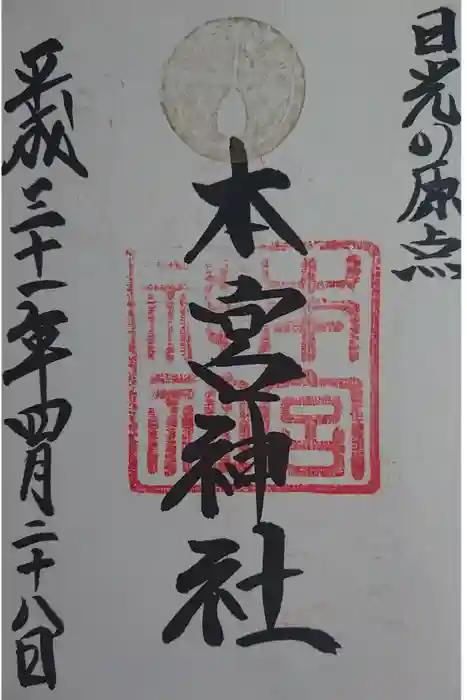 日光の原点
本宮神社
本宮
神社
平成三十一年四月二十八日